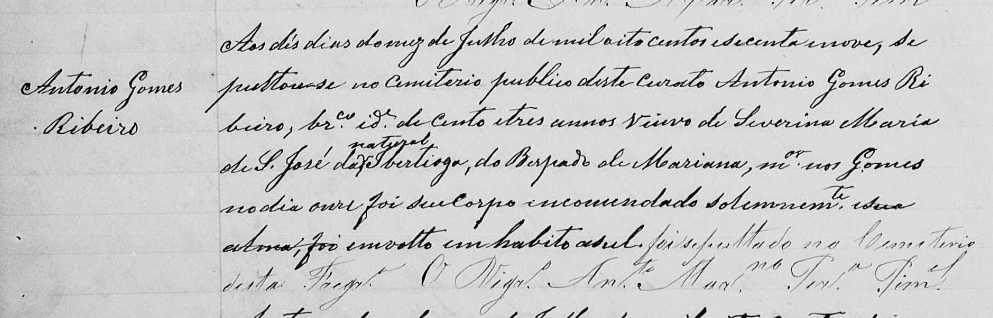 Aos dés dias do mez de Julho de mil oito centos esecenta inove, se
Antonio Gomes
Ribeiro
pultou-se no Cemiterio publico diste curato Antonio Gomes Ri
beiro, br.co id.e de cento etres annos Viuvo de Severina Maria
natural
de S. José da Ibertioga, do Berpado de Mariana, m.or nos Gomes
no dia onze foi seu Corpo incomundado solemnem.te e sua
alma, foi emvolto em habito asul foi sepultado no Cemiterio
desta Fregª. O Vigrº. Ant.to Max.no Per.a Pim.el